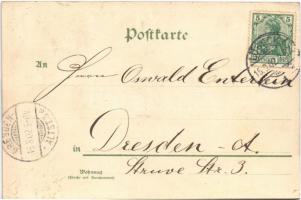 Postkarte
5 5
An Herrn Oswald Enterlein
DRESDEN
ALTST.
in Dresden-A.
Wohnung
(Straße und Hausnummer)
Struve Str. 3.